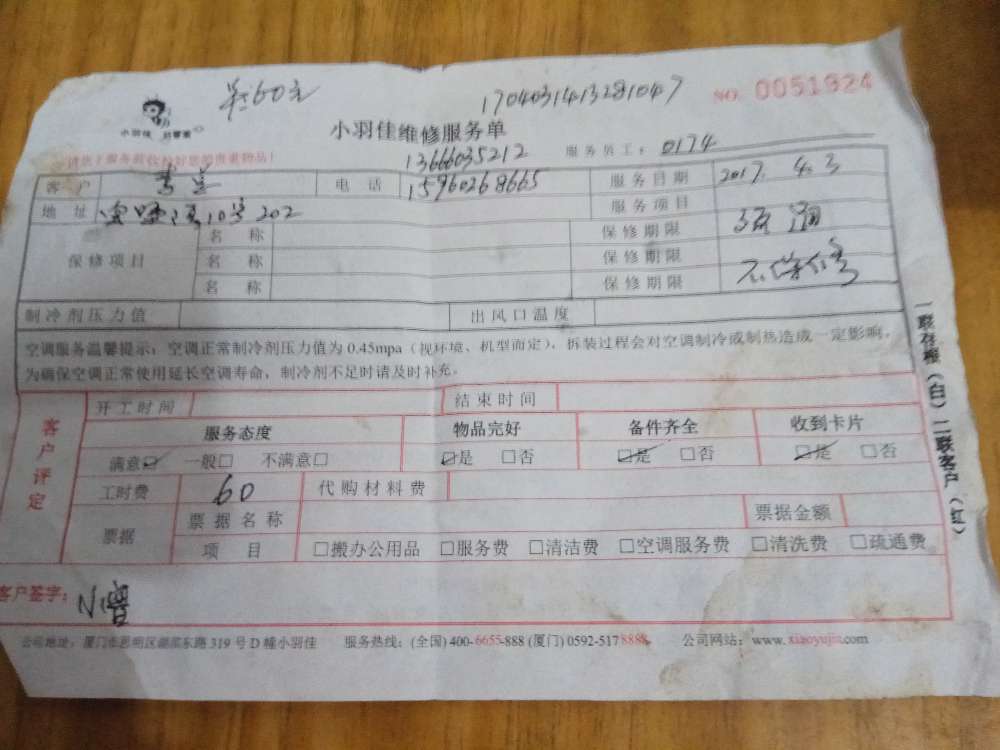 60元
1704031413281047
NO. 0051924
小羽佳
小羽佳维修服务单
13666035212
服务员工: 0174
客 户
电 话 15960268665
服务日期 2017. 4. 3
地 址 10号202
服务项目
保修项目
名 称
保修期限
名 称
保修期限
名 称
保修期限
不保修
制冷剂压力值
出风口温度
空调服务温馨提示:空调正常制冷剂压力值为0.45mpa(视环境、机型而定),拆装过程会对空调制冷或制热造成一定影响,
为确保空调正常使用延长空调寿命,制冷剂不足时请及时补充。
客户评定
开工时间
结束时间
服务态度 物品完好 备件齐全 收到卡片
满意☑ 一般□ 不满意□ ☑是 □否 ☑是 □否 ☑是 □否
工时费 60 代购材料费
票据
票据名称
票据金额
项 目 □搬办公用品 □服务费 □清洁费 □空调服务费 □清洗费 □疏通费
客户签字:
公司地址:厦门市思明区湖滨东路319号D幢小羽佳 服务热线:(全国)400-6655-888 (厦门)0592-5178888 公司网站:www.xiaoyujia.com
一联存根(白)二联客户(红)